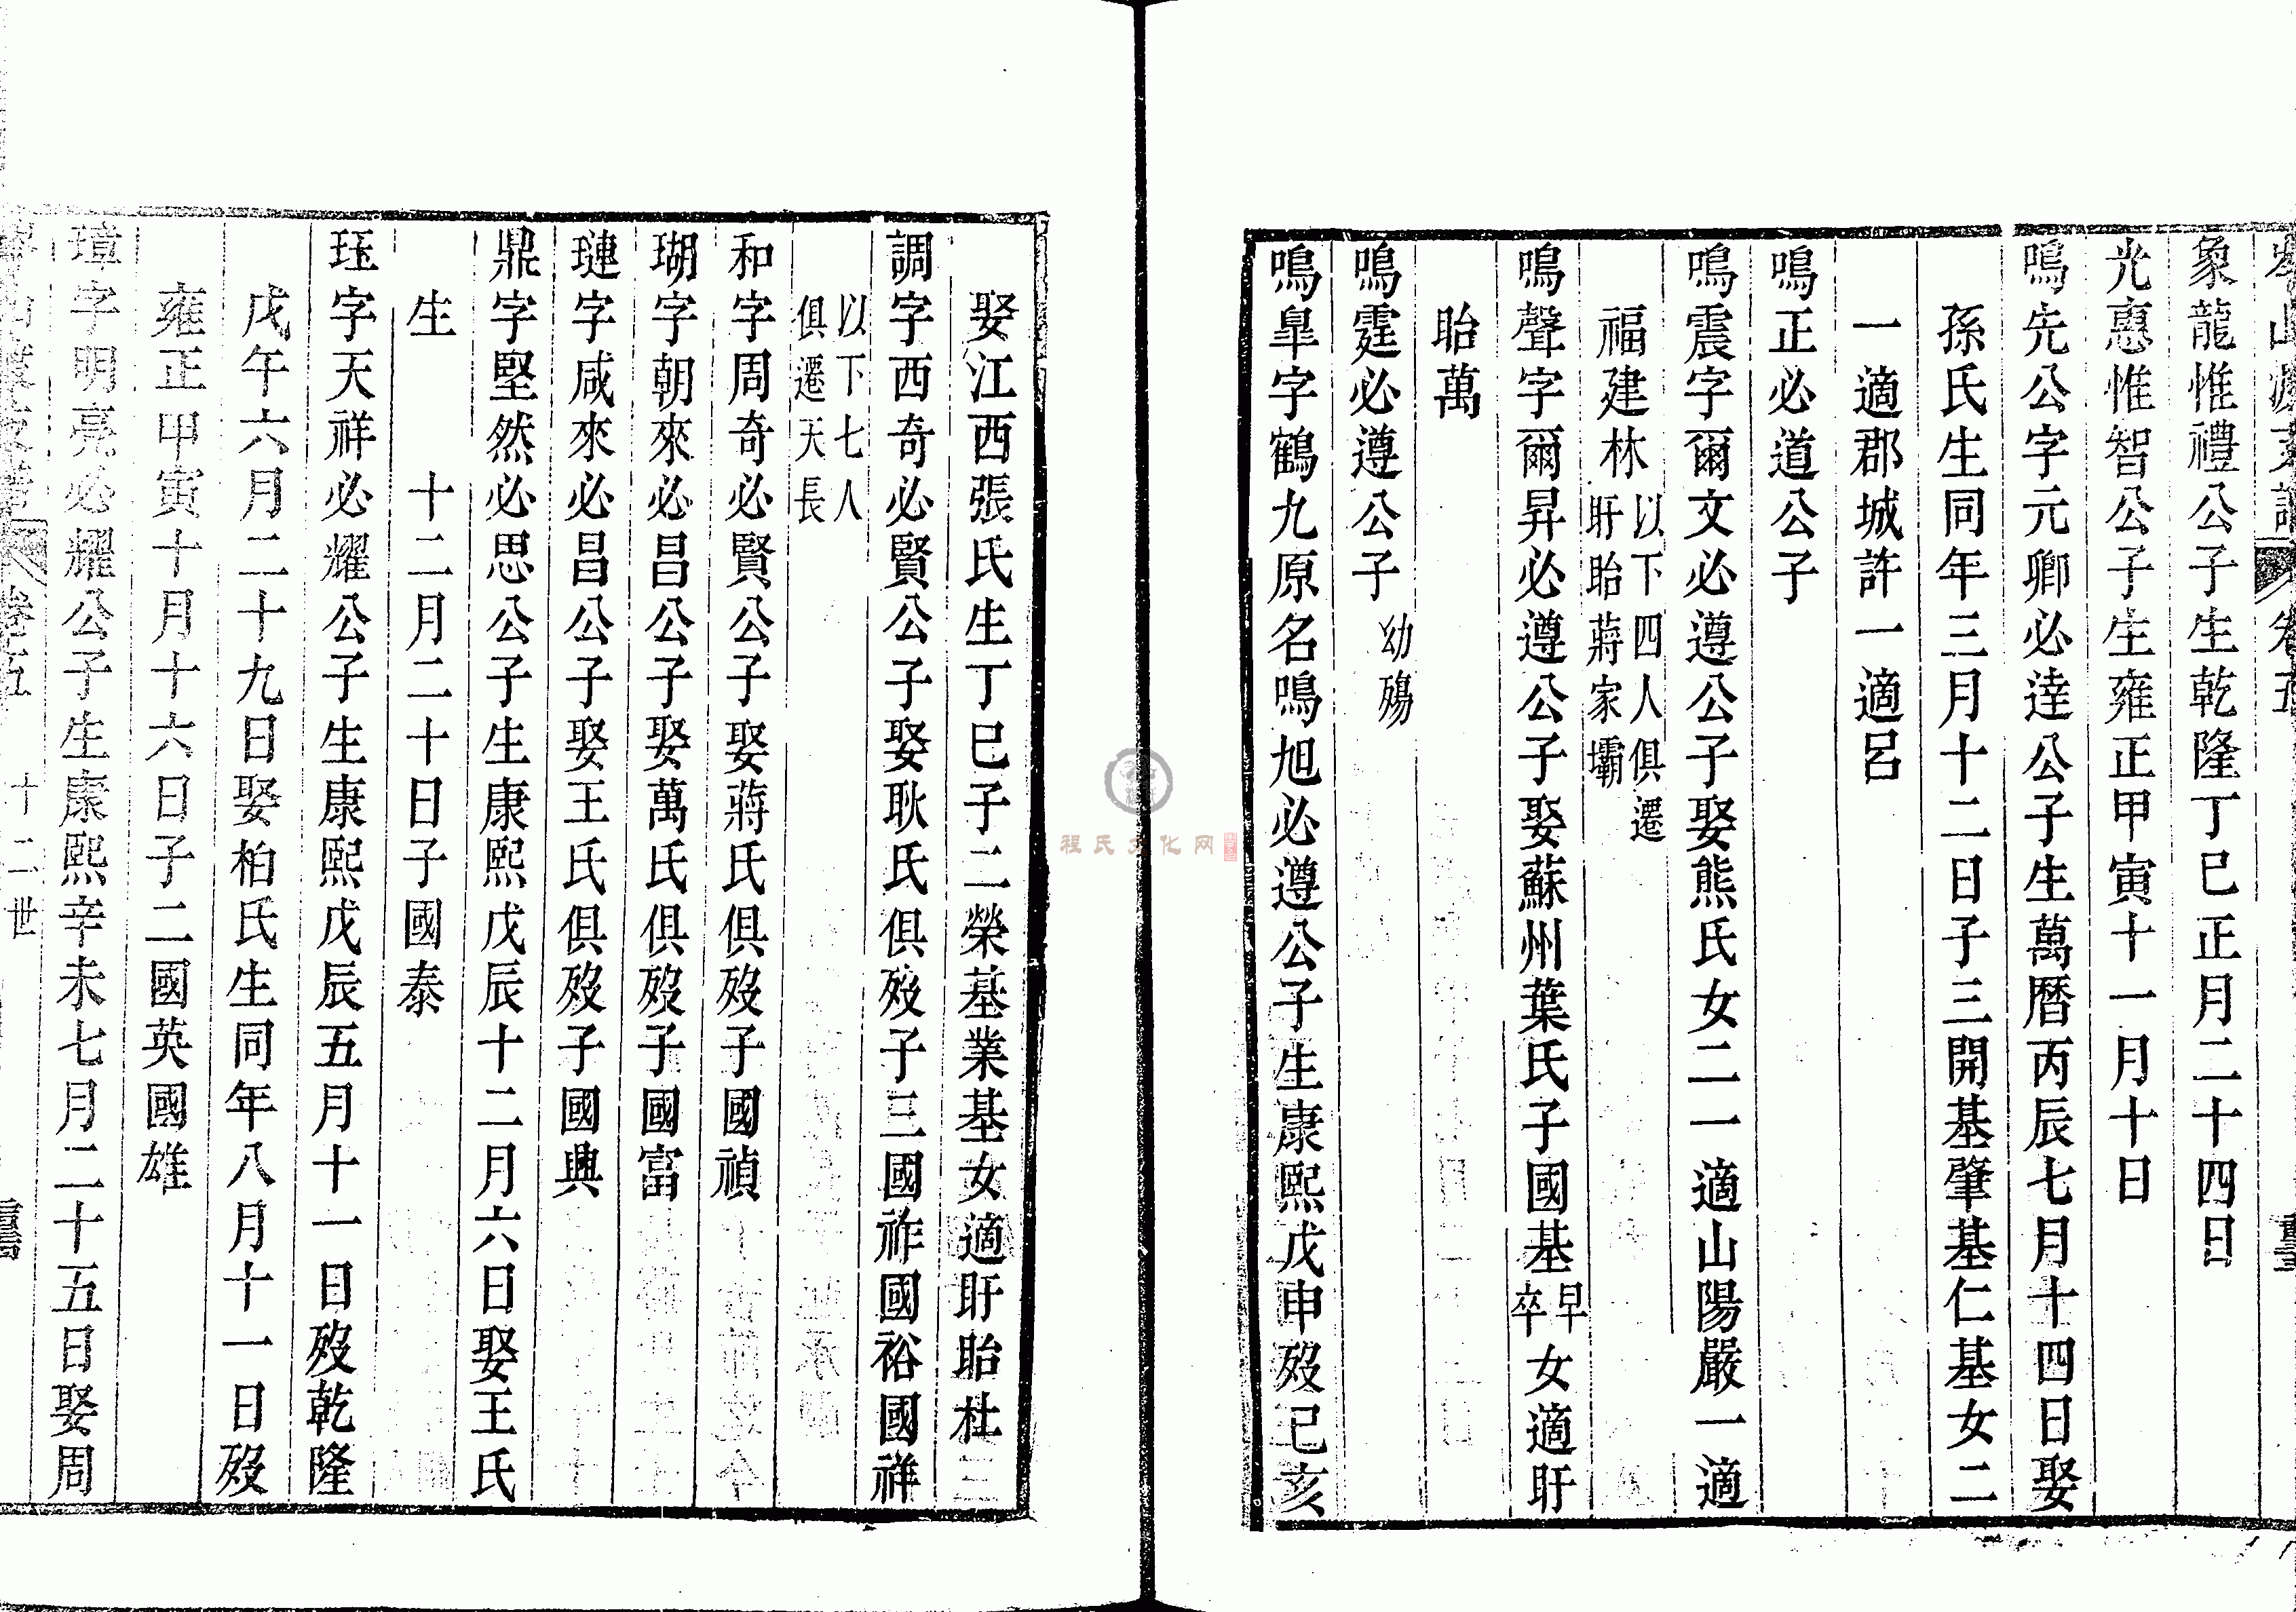 象龍惟禮公子生乾隆丁巳正月二十四日
光惠惟智公子生雍正甲寅十一月十日
鳴先公字元卿必達公子生萬曆丙辰七月十四日娶
孫氏生同年三月十二日子三開基肇基仁基女二
一適郡城許一適呂
鳴正必道公子
鳴震字爾文必遵公子娶熊氏女二一適山陽嚴一適
福建林以下四人俱遷盱眙蔣家壩
鳴聲字爾昇必遵公子娶蘇州葉氏子國基早卒女適盱
眙萬
鳴霆必遵公子幼殤
鳴臯字鶴九原名鳴旭必遵公子生康熙戊申歿己亥
娶江西張氏生丁巳子二榮基業基女適盱眙杜
調字西奇必賢公子娶耿氏俱歿子三國祚國裕國祥
以下七人俱遷天長
和字周奇必賢公子娶蔣氏俱歿子國禎
瑚字朝來必昌公子娶萬氏俱歿子國富
璉字咸來必昌公子娶王氏俱歿子國興
鼎字堅然必思公子生康熙戊辰十二月六日娶王氏
生 十二月二十日子國泰
珏字天祥必耀公子生康熙戊辰五月十一日歿乾隆
戊午六月二十九日娶柏氏生同年八月十一日歿
雍正甲寅十月十六日子二國英國雄
璋字明亮必耀公子生康熙辛未七月二十五日娶周
卷五 十二世
程氏文化网